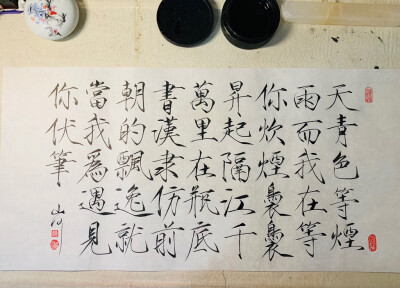 天青色等煙
雨而我在等
你炊煙裊裊
昇起隔江千
萬里在瓶底
書漢隶仿前
朝的飄逸就
當我爲遇見
你伏筆